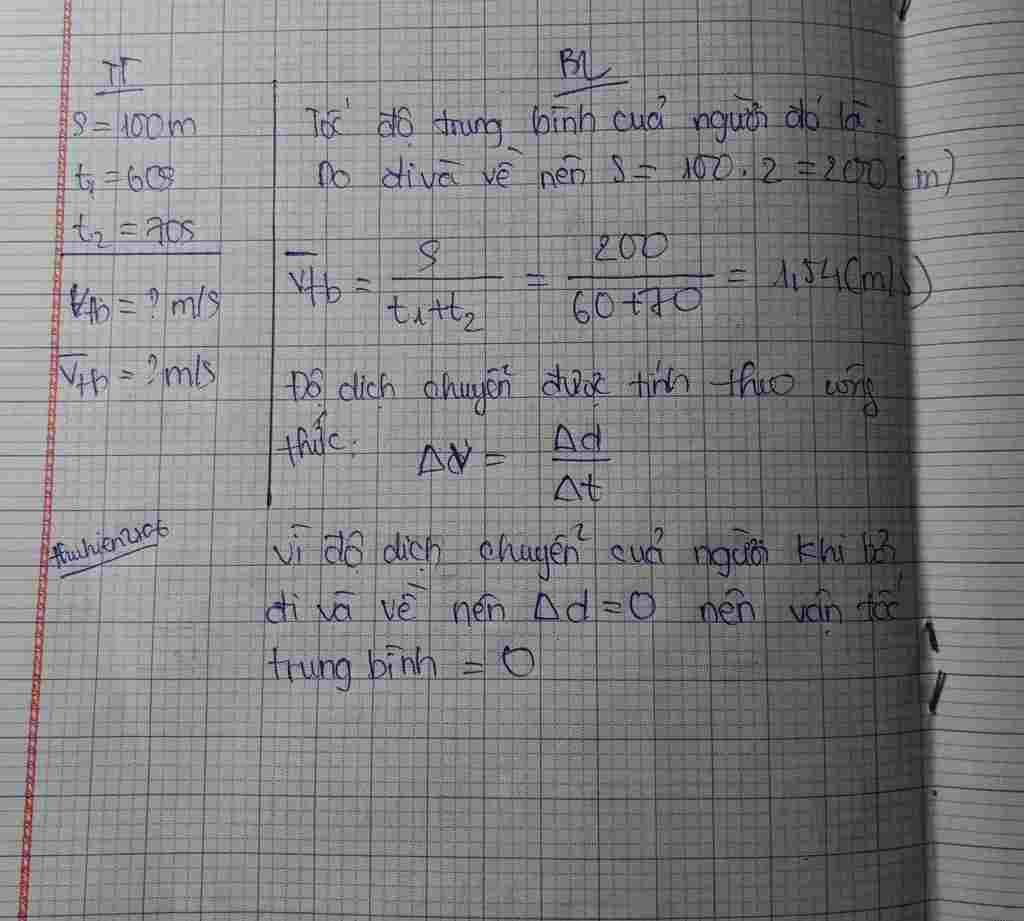 TT
S = 100m
t₁ = 60s
t₂ = 70s
Vtb = ? m/s
V̄tb = ? m/s
thuhien2106
BL
Tốc độ trung bình của người đó là.
Do đi và về nên S = 100 . 2 = 200 (m)
V̄tb = S / (t₁+t₂) = 200 / (60+70) = 1,54 (m/s)
Độ dịch chuyển được tính theo công
thức: Δv = Δd / Δt
Vì độ dịch chuyển của người khi bơi
đi và về nên Δd = 0 nên vận tốc
trung bình = 0